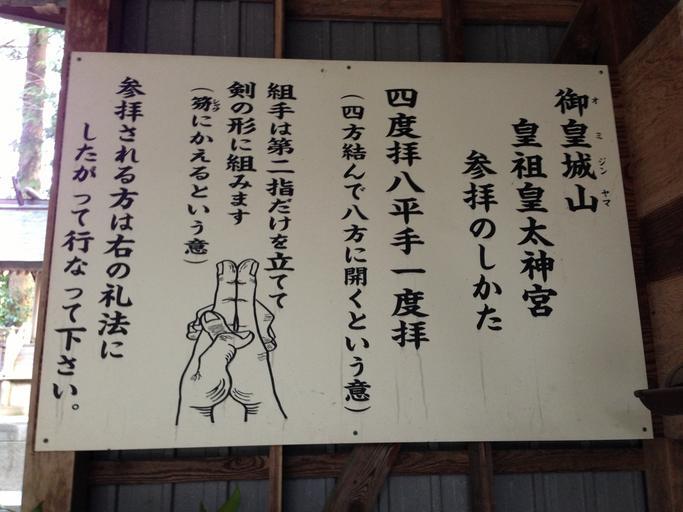 御皇城山
オミジンヤマ
皇祖皇太神宮
参拝のしかた
四度拝八平手一度拝
(四方結んで八方に開くという意)
組手は第二指だけを立てて
剣の形に組みます
(笏にかえるという意)
シャク
参拝される方は右の礼法に
したがって行なって下さい。